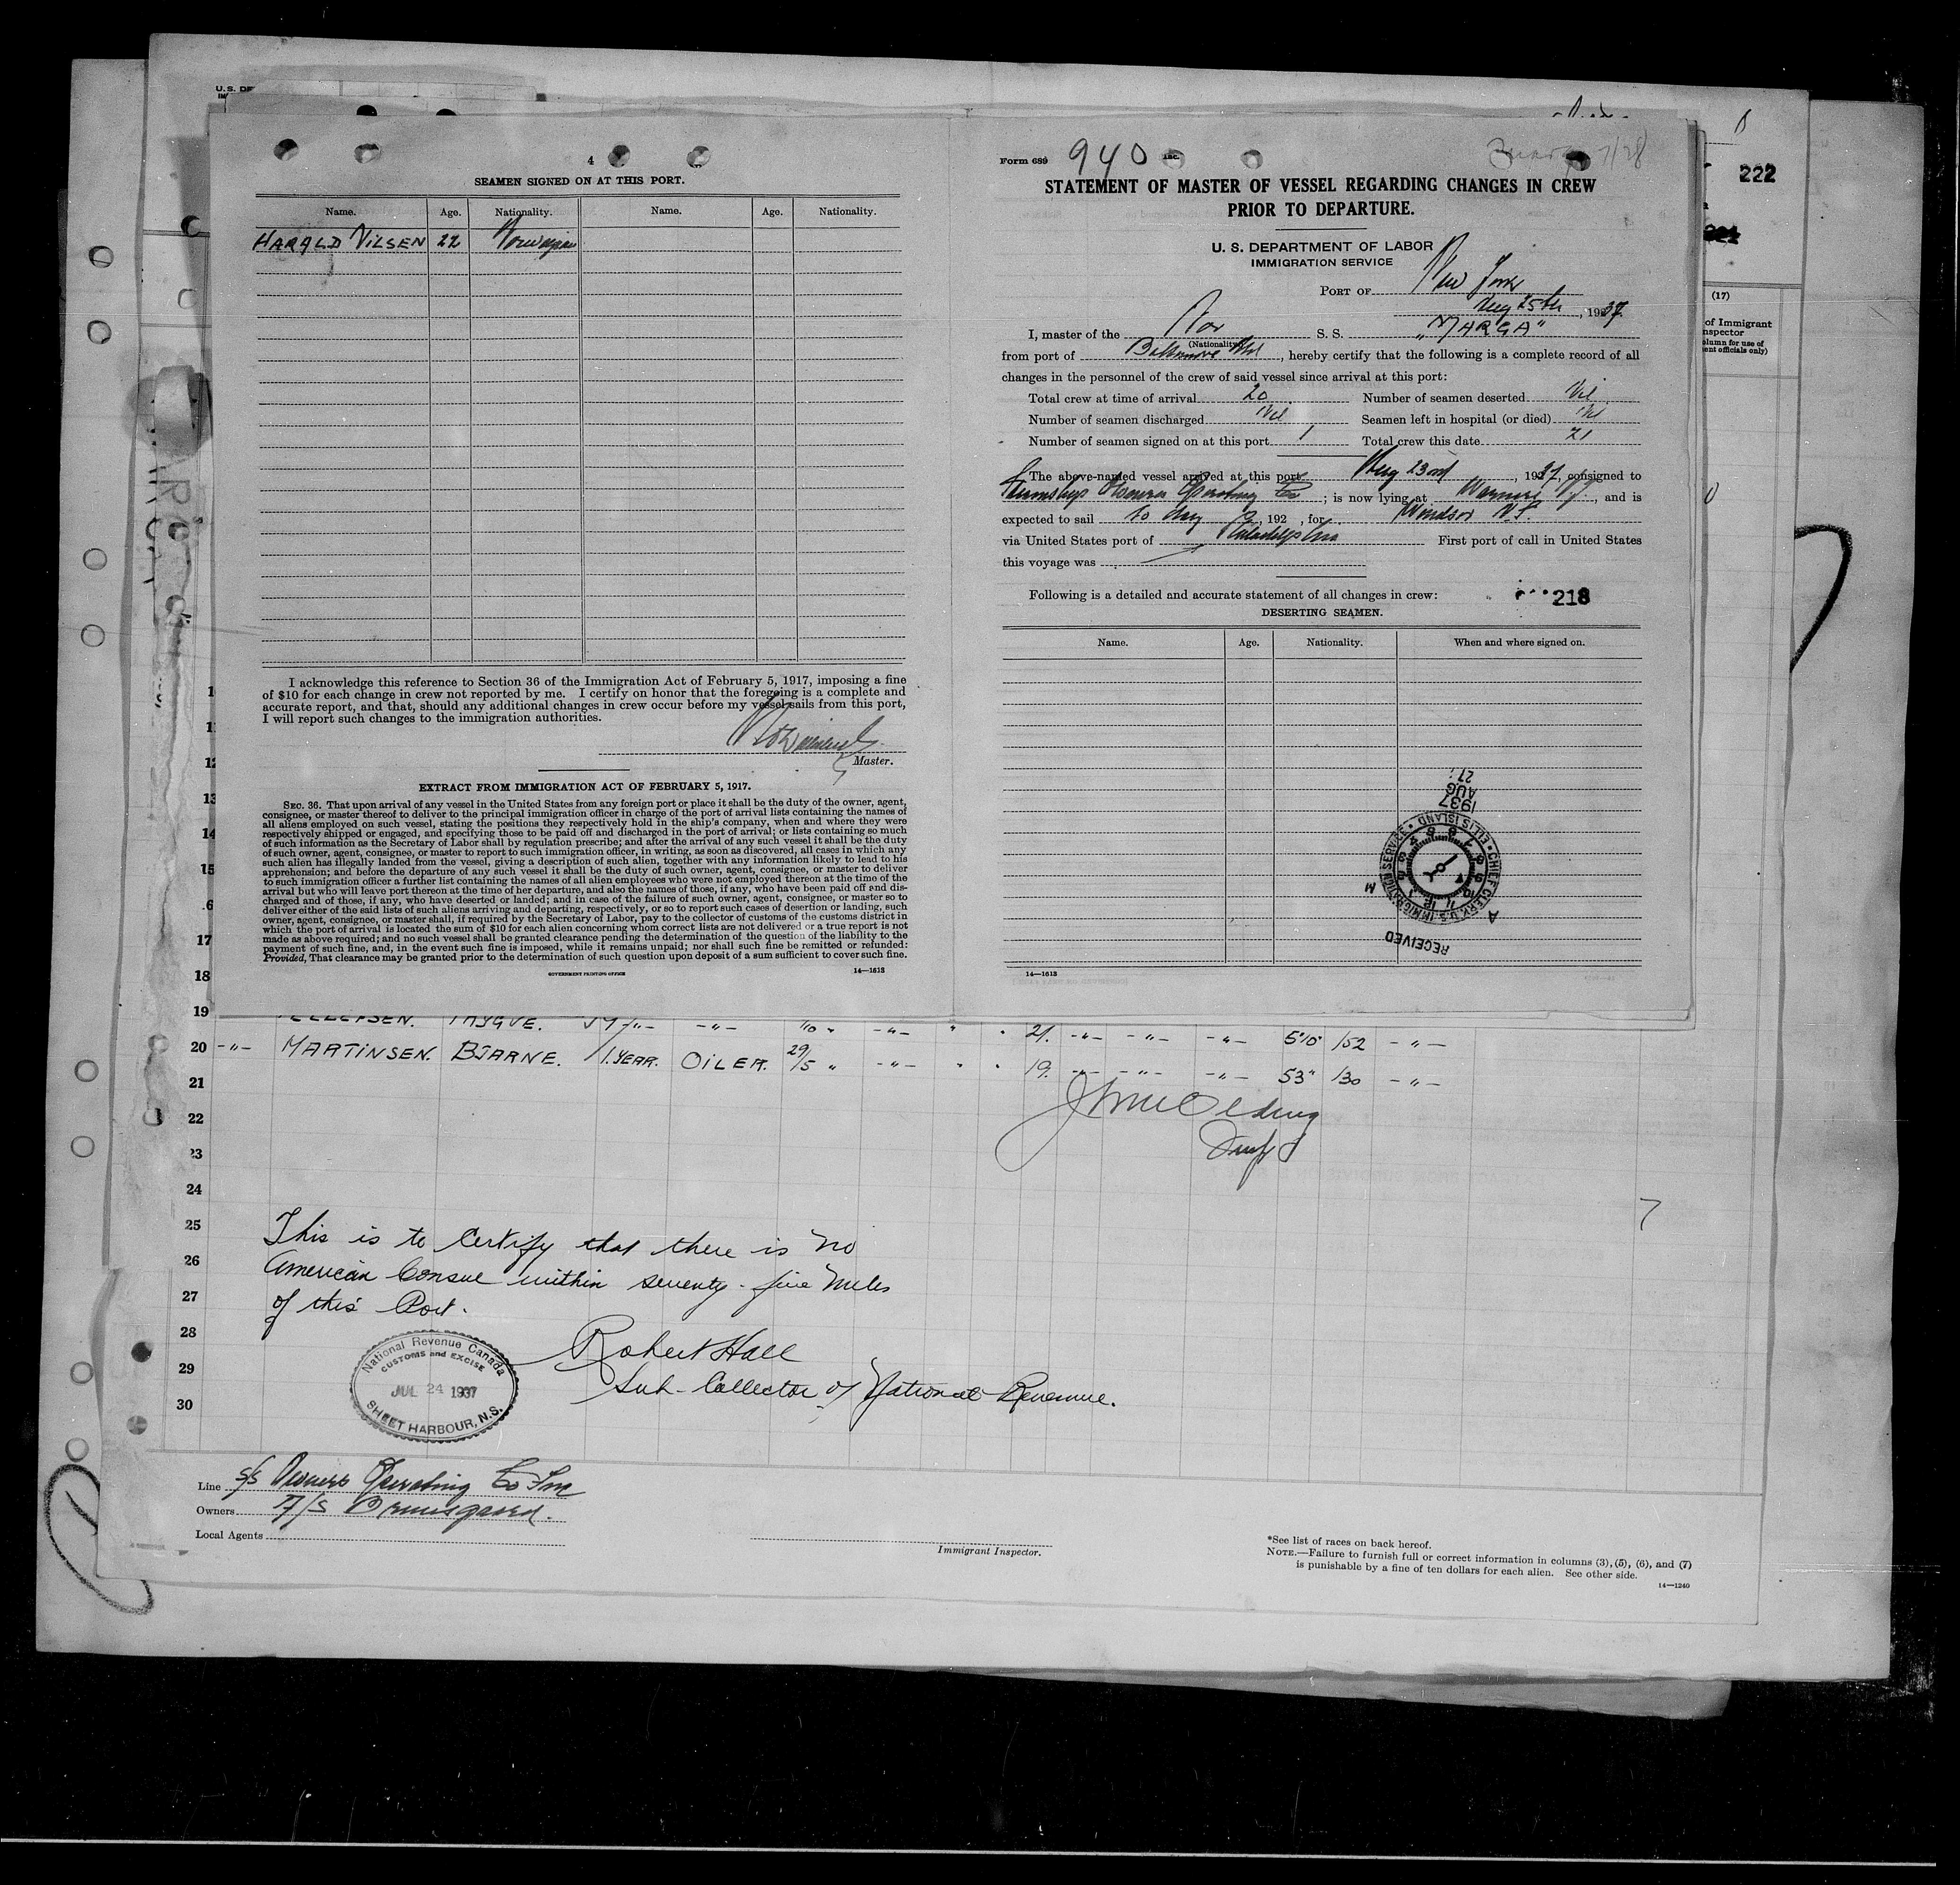 U.S. DE
4
SEAMEN SIGNED ON AT THIS PORT.
Name. Age. Nationality. Name. Age. Nationality.
HARALD NILSEN 22 Norwegian
I acknowledge this reference to Section 36 of the Immigration Act of February 5, 1917, imposing a fine
of $10 for each change in crew not reported by me. I certify on honor that the foregoing is a complete and
accurate report, and that, should any additional changes in crew occur before my vessel sails from this port,
I will report such changes to the immigration authorities.
Master.
EXTRACT FROM IMMIGRATION ACT OF FEBRUARY 5, 1917.
SEC. 36. That upon arrival of any vessel in the United States from any foreign port or place it shall be the duty of the owner, agent,
consignee, or master thereof to deliver to the principal immigration officer in charge of the port of arrival lists containing the names of
all aliens employed on such vessel, stating the positions they respectively hold in the ship's company, when and where they were
respectively shipped or engaged, and specifying those to be paid off and discharged in the port of arrival; or lists containing so much
of such information as the Secretary of Labor shall by regulation prescribe; and after the arrival of any such vessel it shall be the duty
of such owner, agent, consignee, or master to report to such immigration officer, in writing, as soon as discovered, all cases in which any
such alien has illegally landed from the vessel, giving a description of such alien, together with any information likely to lead to his
apprehension; and before the departure of any such vessel it shall be the duty of such owner, agent, consignee, or master to deliver
to such immigration officer a further list containing the names of all alien employees who were not employed thereon at the time of the
arrival but who will leave port thereon at the time of her departure, and also the names of those, if any, who have been paid off and dis-
charged and of those, if any, who have deserted or landed; and in case of the failure of such owner, agent, consignee, or master so to
deliver either of the said lists of such aliens arriving and departing, respectively, or so to report such cases of desertion or landing, such
owner, agent, consignee, or master shall, if required by the Secretary of Labor, pay to the collector of customs of the customs district in
which the port of arrival is located the sum of $10 for each alien concerning whom correct lists are not delivered or a true report is not
made as above required; and no such vessel shall be granted clearance pending the determination of the question of the liability to the
payment of such fine, and, in the event such fine is imposed, while it remains unpaid; nor shall such fine be remitted or refunded:
Provided, That clearance may be granted prior to the determination of such question upon deposit of a sum sufficient to cover such fine.
GOVERNMENT PRINTING OFFICE 14—1613
Form 689 940 7/28
STATEMENT OF MASTER OF VESSEL REGARDING CHANGES IN CREW
PRIOR TO DEPARTURE.
U. S. DEPARTMENT OF LABOR
IMMIGRATION SERVICE
PORT OF New York
Aug 25th, 1937.
I, master of the Nor S. S. "MARGA"
(Nationality)
from port of Baltimore Md, hereby certify that the following is a complete record of all
changes in the personnel of the crew of said vessel since arrival at this port:
Total crew at time of arrival 20 Number of seamen deserted Nil
Number of seamen discharged Nil Seamen left in hospital (or died) Nil
Number of seamen signed on at this port 1 Total crew this date 21
The above-named vessel arrived at this port Aug 23rd, 1937, consigned to
Steamship Owners Operating Co; is now lying at , and is
expected to sail to day, 192 , for Windsor N.S.
via United States port of Philadelphia First port of call in United States
this voyage was
Following is a detailed and accurate statement of all changes in crew: 218
DESERTING SEAMEN.
Name. Age. Nationality. When and where signed on.
1937 AUG 27
CHIEF CLERK U.S. IMMIGRATION SERVICE • ELLIS ISLAND •
RECEIVED
14—1613
222
(17)
of Immigrant
nspector
olumn for use of
ent officials only)
10
11
12
13
14
15
16
17
18
19
TRYGVE. 21. 5'10" 152
20 MARTINSEN. BJARNE. 1. YEAR. OILER. 29/5 " 19. 53" 130
21
22
23
24
25
26
27
28
29
30
This is to Certify that there is no
American Consul within seventy-five miles
of this Port.
Robert Hall
Sub-Collector of National Revenue.
National Revenue Canada
CUSTOMS and EXCISE
JUL 24 1937
SHEET HARBOUR, N.S.
Line S/S Owners Operating Co Inc
Owners
Local Agents
Immigrant Inspector.
*See list of races on back hereof.
NOTE.—Failure to furnish full or correct information in columns (3), (5), (6), and (7)
is punishable by a fine of ten dollars for each alien. See other side.
14—1240